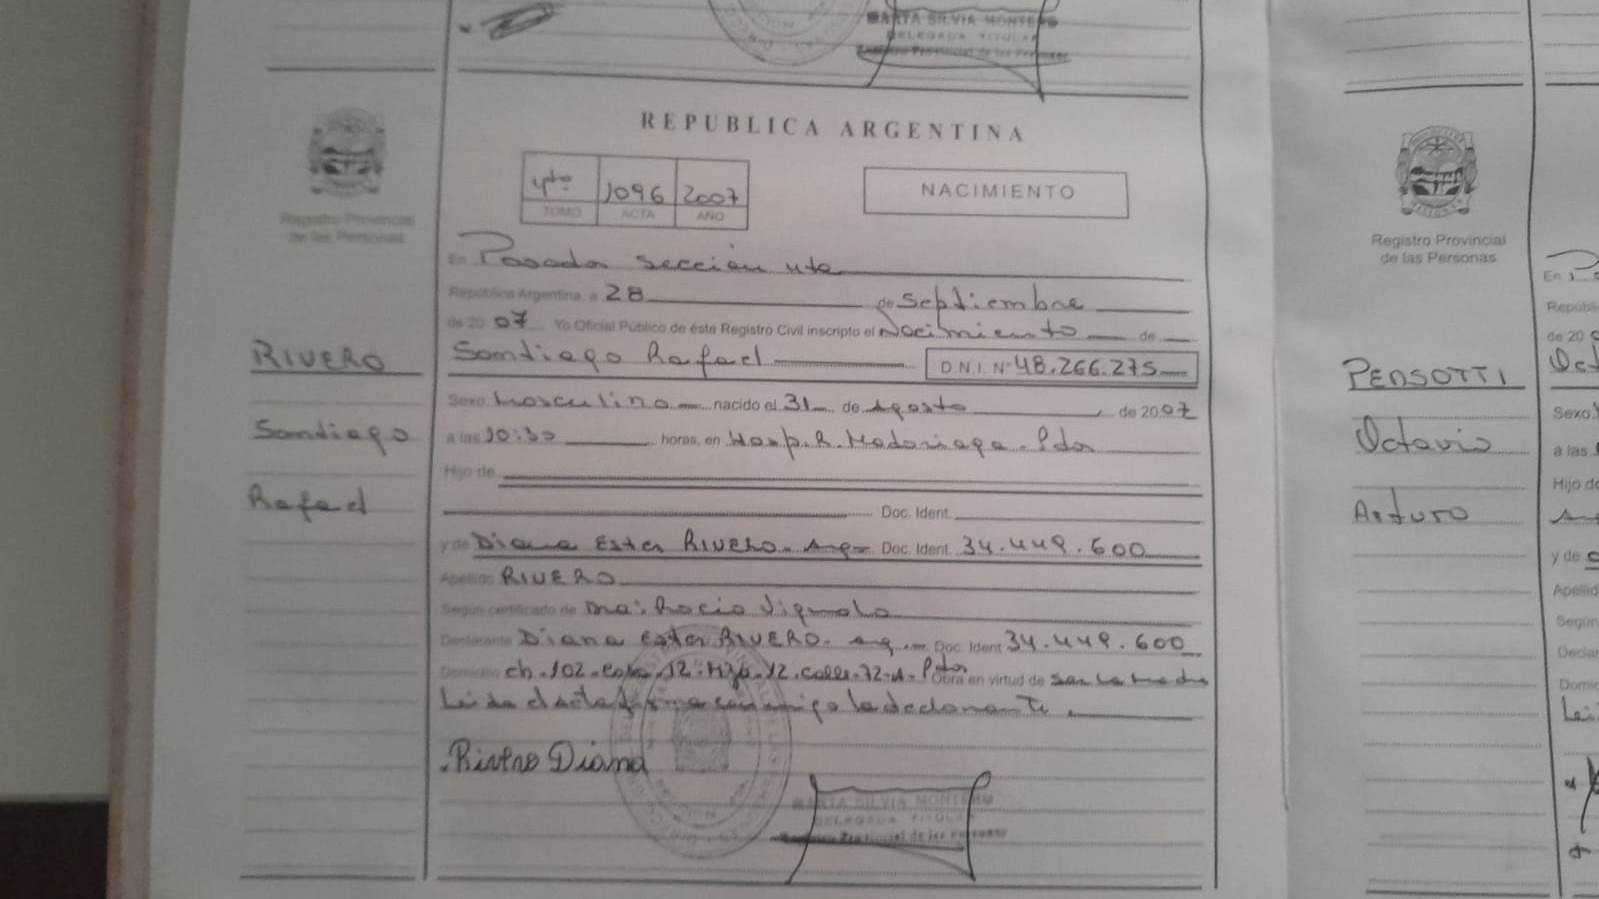 MARTA SILVIA MONTERO
DELEGADA TITULAR
Registro Provincial de las Personas
REPUBLICA ARGENTINA
4to 1096 2007
TOMO ACTA AÑO
NACIMIENTO
Registro Provincial
de las Personas
En Posadas sección 4ta
República Argentina, a 28 de Septiembre
de 20 07 Yo Oficial Público de éste Registro Civil inscripto el Nacimiento de
RIVERO
Santiago Rafael D.N.I. Nº 48.266.275
Sexo Masculino nacido el 31 de Agosto de 2007
Santiago
a las 10:30 horas, en Hosp. R. Madariaga. Pdas
Hijo de
Rafael
Doc. Ident.
y de Diana Ester RIVERO. Arg. Doc. Ident. 34.449.600
Apellido RIVERO
Según certificado de Dra: Rocío
Declarante Diana Ester RIVERO. Arg. Doc. Ident 34.449.600
Domicilio ch. 102. 12. calle. 72. A. Pdas Obra en virtud de ser la madre
Leída el acta firma conmigo la declarante.
Rivero Diana
MARTA SILVIA MONTERO
DELEGADA TITULAR
Registro Provincial de las Personas
Registro Provincial
de las Personas
MISIONES
PENSOTTI
Octavio
Arturo
En
Repúbli
de 20 0
Oct
Sexo
a las
Hijo de
y de
Apellid
Según
Declar
Domic
Leí